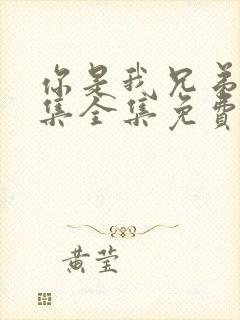 你是我兄弟
集全集免费
黄莹